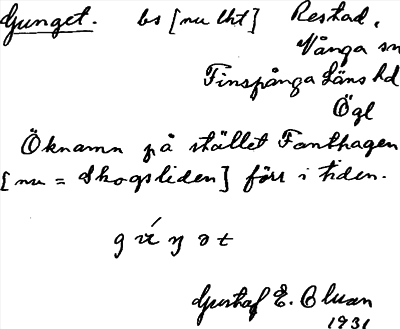 Gunget. bs [nu lht] Restad,
Vånga sn
Finspånga Läns hd
Ögl
Öknamn på stället Fanthagen
[nu = Skogsliden] förr i tiden.
Gustaf E. Cluan
1931